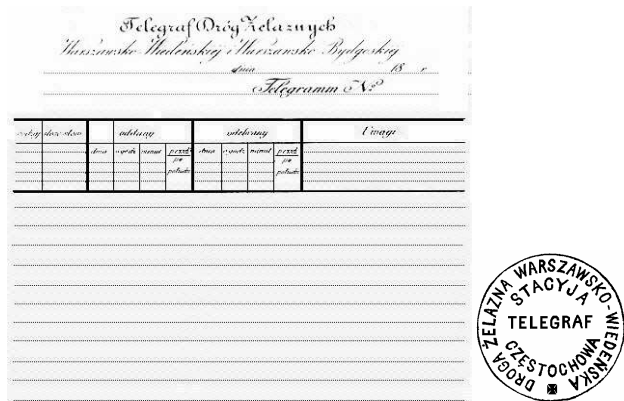 Telegraf Dróg Żelaznych
Warszawsko Wiedeńskiej i Warszawsko Bydgoskiej
dnia 18 r
Telegramm Nº
rodzaj ilość słów oddany odebrany Uwagi
dnia godz minut przed po połudn dnia godz minut przed po połudn
DROGA ŻELAZNA WARSZAWSKO-WIEDEŃSKA
STACYJA
TELEGRAF
CZĘSTOCHOWA